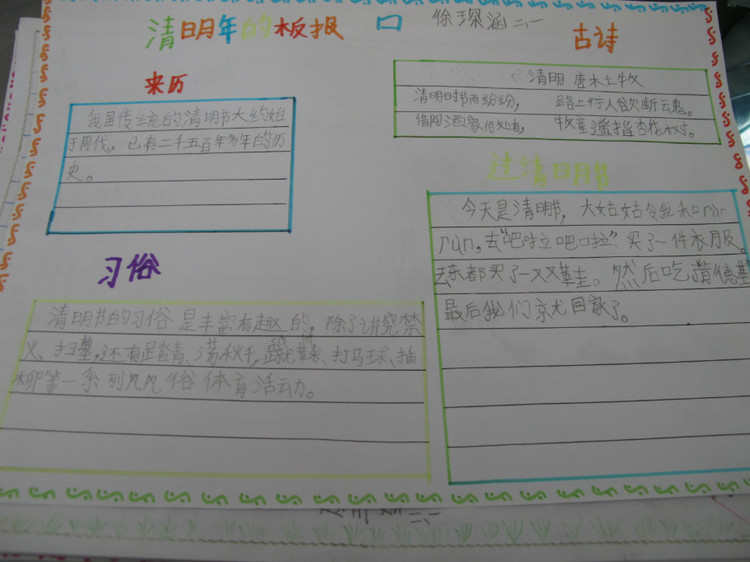 清明年的板报 口 徐琛涵 二、一
来历
我国传统的清明节大约始
于周代。已有二千五百年多年的历
史。
古诗
清明 唐 木土牧
清明时节雨纷纷， 路上行人欲断云鬼。
借问酒家何处有， 牧童遥指杏花村。
习俗
清明节的习俗是丰富有趣的，除了讲究禁
火、扫墓，还有踏青、荡秋千，蹴鞠、打马球、插
柳等一系列风俗体育活动。
过清明节
今天是清明节，大姑姑
run，去“吧啦吧啦”买了一件衣服，
去 都买了一双鞋。然后吃
最后我们京尤回家了。